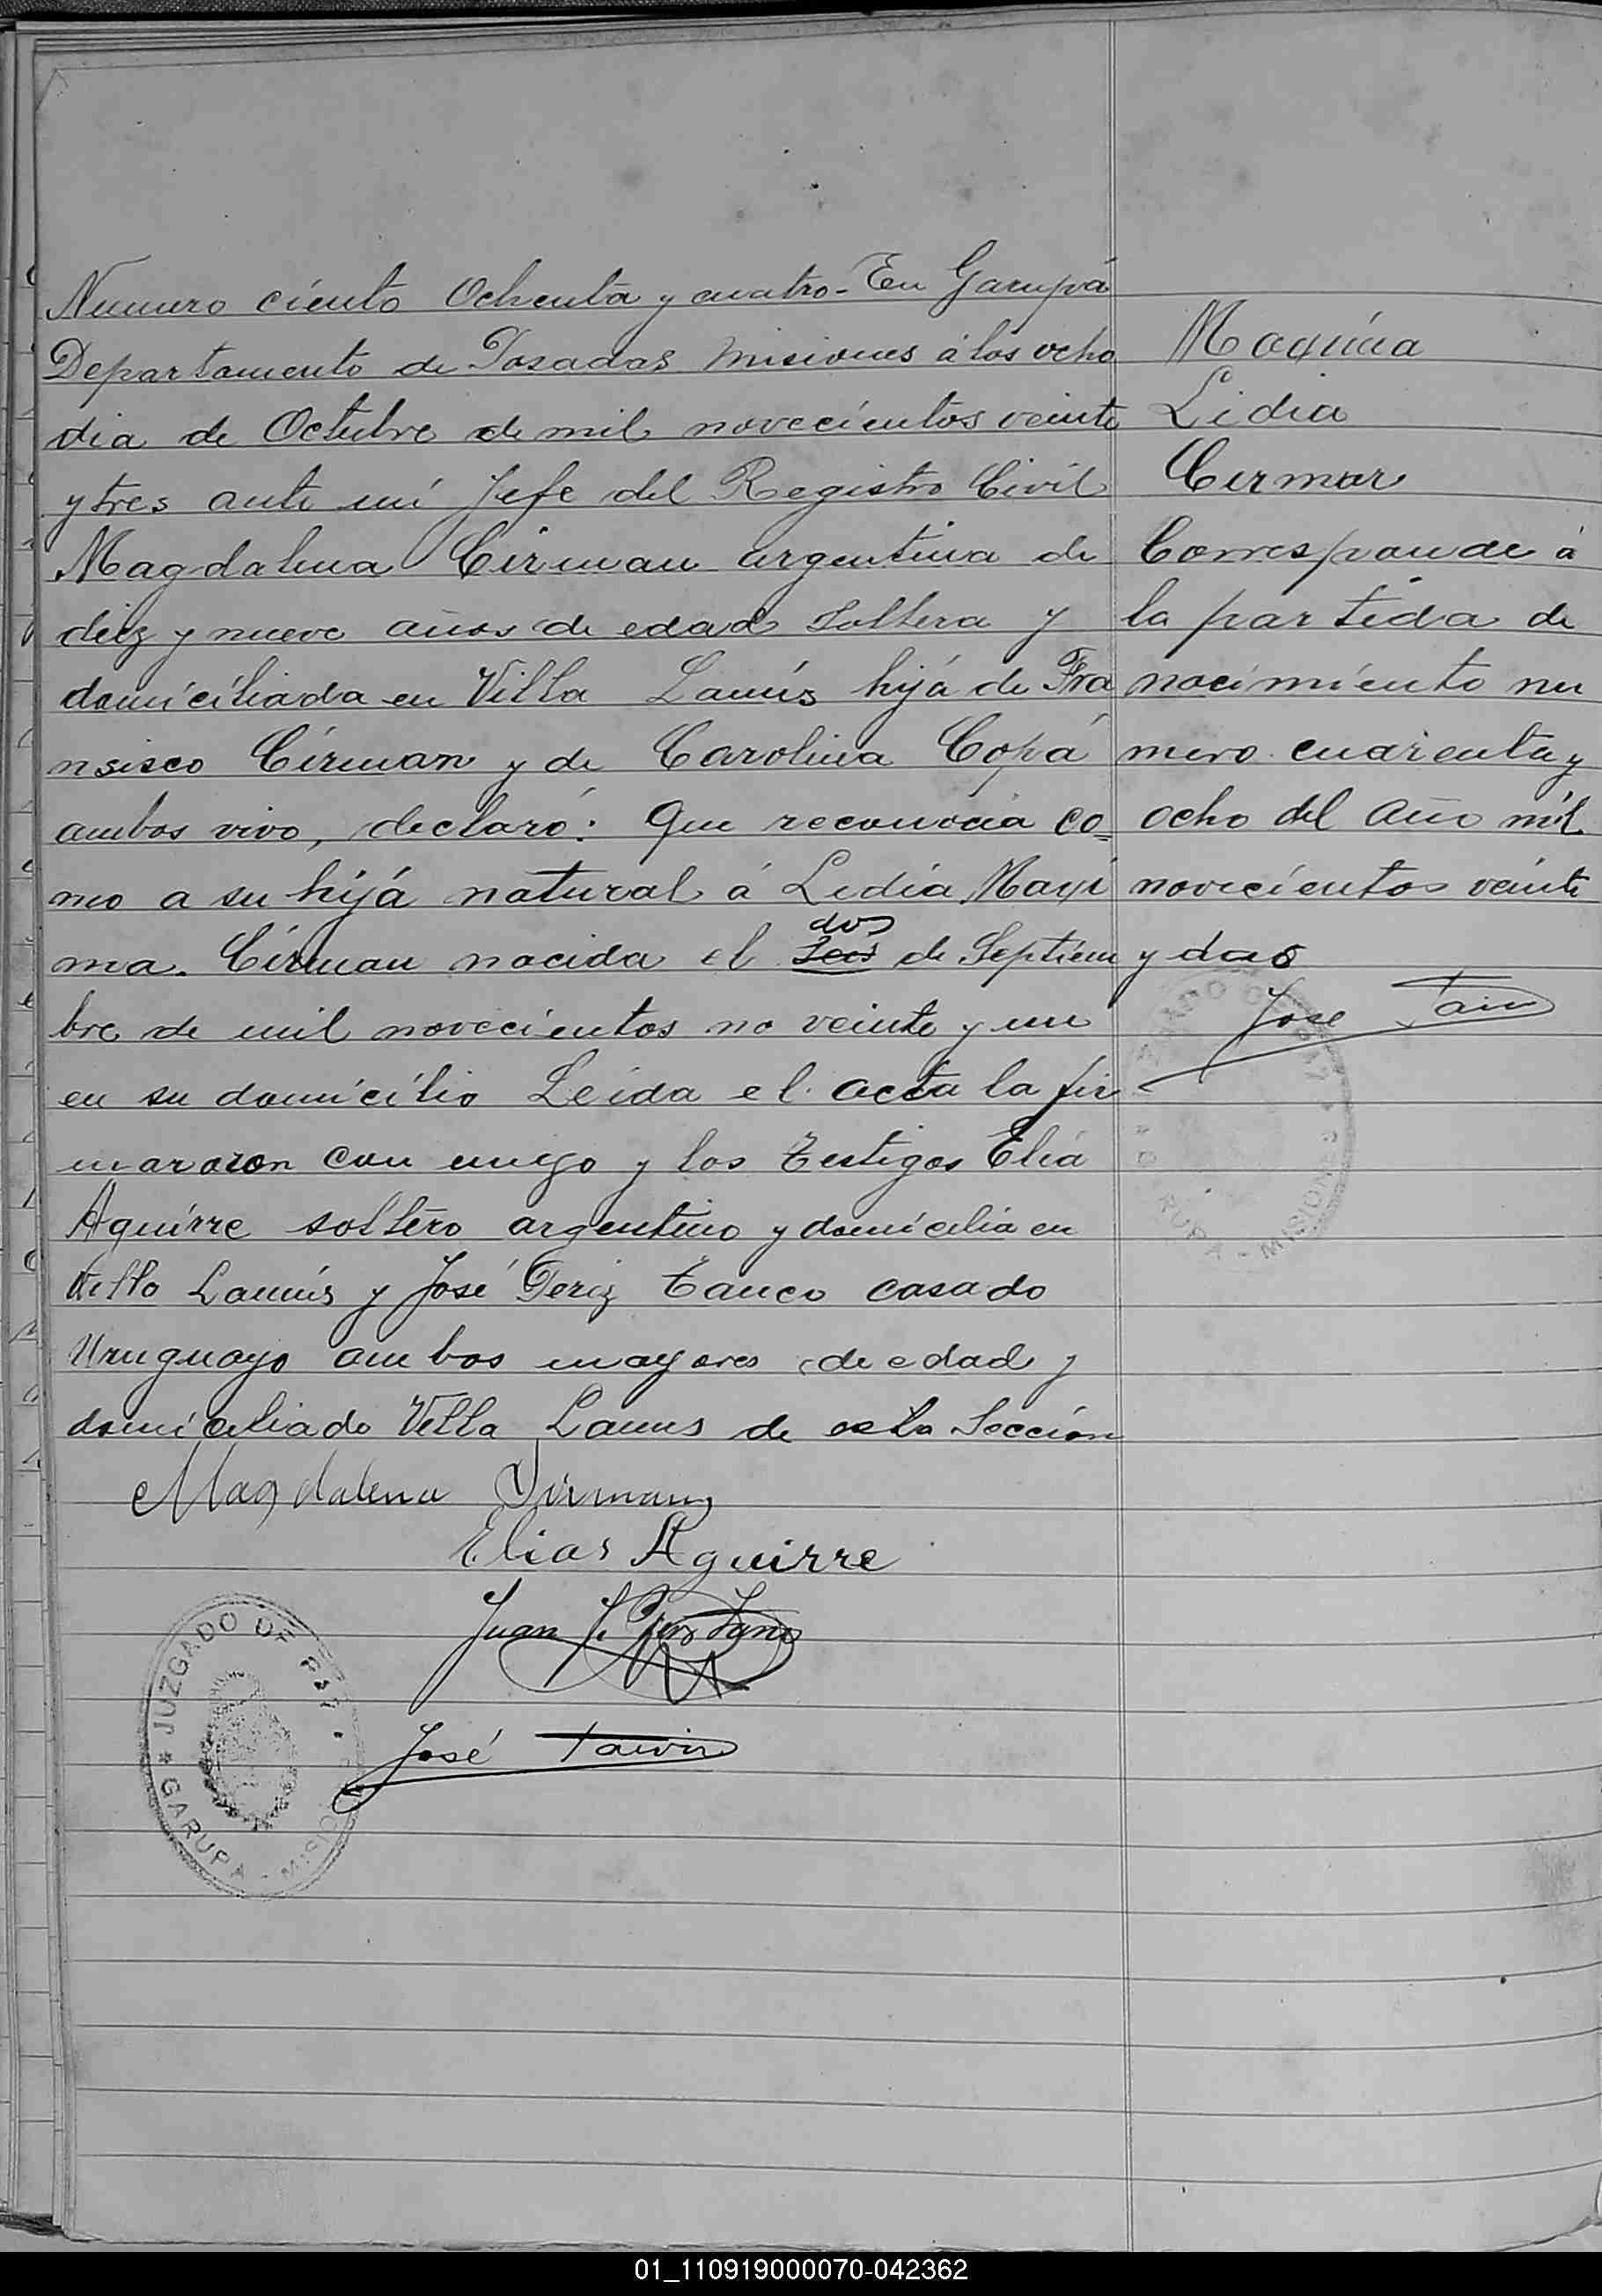 Numero ciento Ochenta y cuatro - En Garupá
Departamento de Posadas Misiones á los ocho
dia de Octubre de mil novecientos veinte
y tres ante mi Jefe del Registro Civil
Magdalena Cirman argentina de
diez y nueve años de edad soltera y
domiciliada en Villa Lanús hijá de Fra
nsisco Cirman y de Carolina Copá
ambos vivo, declaró: Que reconocia co=
mo a su hijá natural á Lidia Maxi
ma. Cirman nacida el dos de Septiem
bre de mil novecientos no veinte y un
en su domicilio Leida el acta la fir
mararon con migo y los testigos Eliá
Aguirre soltero argentino y domicilia en
Villa Lanús y José Periz Tanco casado
Uruguayo ambos mayores de edad y
domiciliado Villa Lanus de esta Sección
Magdalena Sirman
Elias Aguirre
Juan J.
José
JUZGADO DE PAZ
* GARUPA - MISIONES
Maxima
Lidia
Cirman
Corresponde á
la partida de
nacimiento nu
mero cuarenta y
ocho del año mil
novecientos veinte
y dos
Jose
JUZGADO DE PAZ
GARUPA - MISIONES
01_110919000070-042362